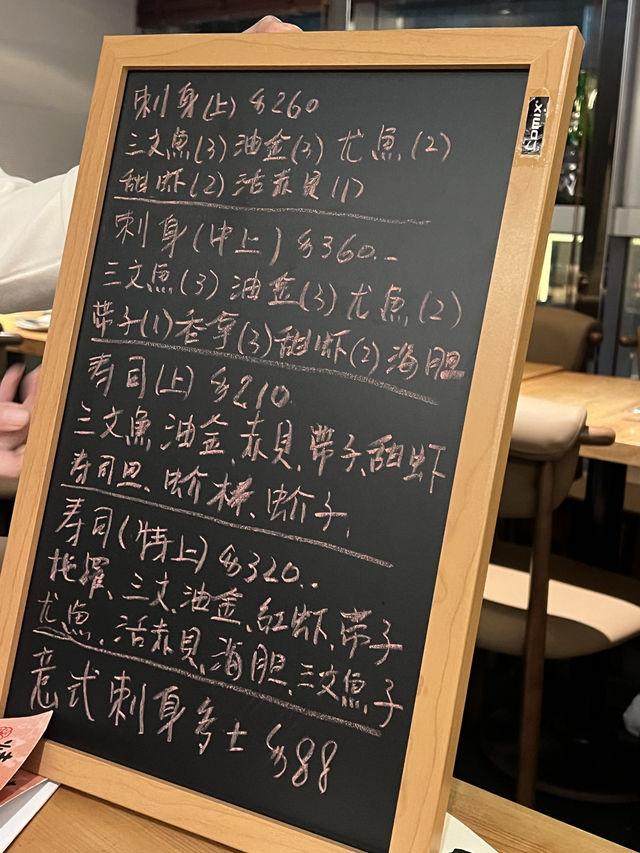 刺身(上) $260
三文魚(3) 油金(3) 尤魚(2)
甜虾(2) 活赤貝(1)
刺身(中上) $360..
三文魚(3) 油金(3) 尤魚(2)
带子(1) 香拿(3) 甜虾(2) 海胆
寿司(上) $210
三文魚、油金、赤貝、带子、甜虾
寿司旦、虫介棒、虫介子,
寿司(特上) $320..
拖羅、三文、油金、紅虾、带子
尤魚、活赤貝、海胆、三文魚子
意式刺身多士 $88